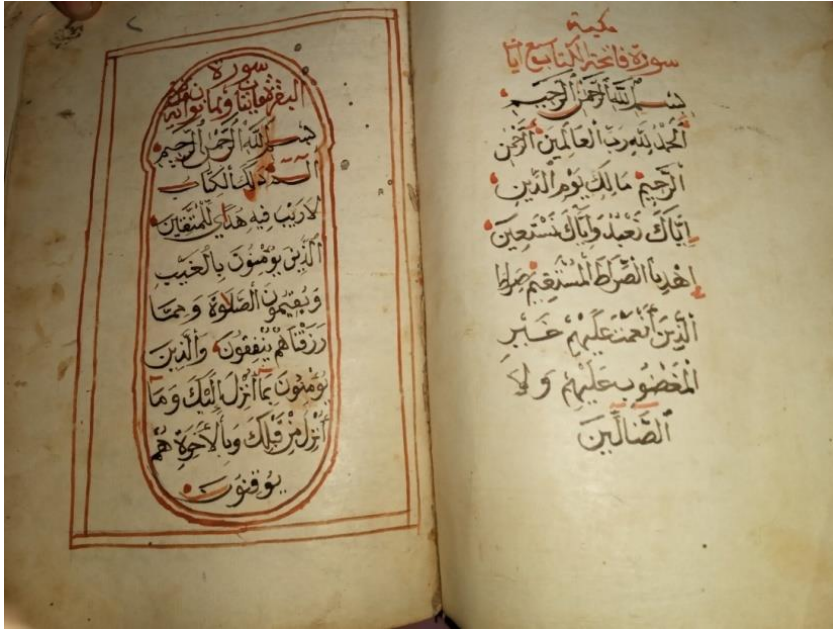 مكية
سورة فاتحة الكتاب سبع ايات
بسم الله الرحمن الرحيم
الحمد لله رب العالمين الرحمن
الرحيم مالك يوم الدين
اياك نعبد واياك نستعين
اهدنا الصراط المستقيم صراط
الذين أنعمت عليهم غير
المغضوب عليهم ولا
الضالين
سورة
البقرة مايتان وثمانون آية
بسم الله الرحمن الرحيم
الم ذلك الكتاب
لا ريب فيه هدى للمتقين
الذين يؤمنون بالغيب
ويقيمون الصلاة ومما
رزقناهم ينفقون والذين
يؤمنون بما أنزل اليك وما
أنزل من قبلك وبالآخرة هم
يوقنون